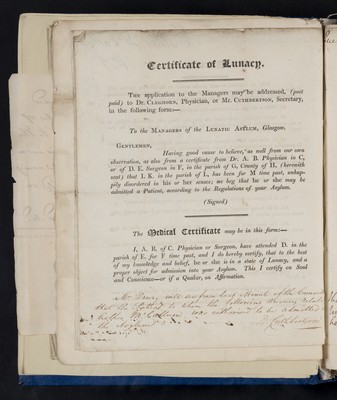 Certificate of Lunacy.
THE application to the Managers may be addressed, (post
paid) to DR CLEGHORN, Physician, or MR. CUTHBERTSON, Secretary,
in the following form:—
To the MANAGERS of the LUNATIC ASYLUM, Glasgow.
GENTLEMEN,
Having good cause to believe, as well from our own
observation, as also from a certificate from Dr. A. B. Physician in C,
or of D. E. Surgeon in F, in the parish of G, County of H, (herewith
sent) that I. K. in the parish of L, has been for M time past, unhap-
pily disordered in his or her senses; we beg that he or she may be
admitted a Patient, according to the Regulations of your Asylum.
(Signed)
The Medical Certificate may be in this form:—
I, A. B. of C. Physician or Surgeon, have attended D. in the
parish of E. for F time past, and I do hereby certify, that to the best
of my knowledge and belief, he or she is in a state of Lunacy, and a
proper object for admission into your Asylum. This I certify on Soul
and Conscience—or if a Quaker, on Affirmation.
that the to whom the following
was authorised to be admitted
the Asylum
Cuthbertson